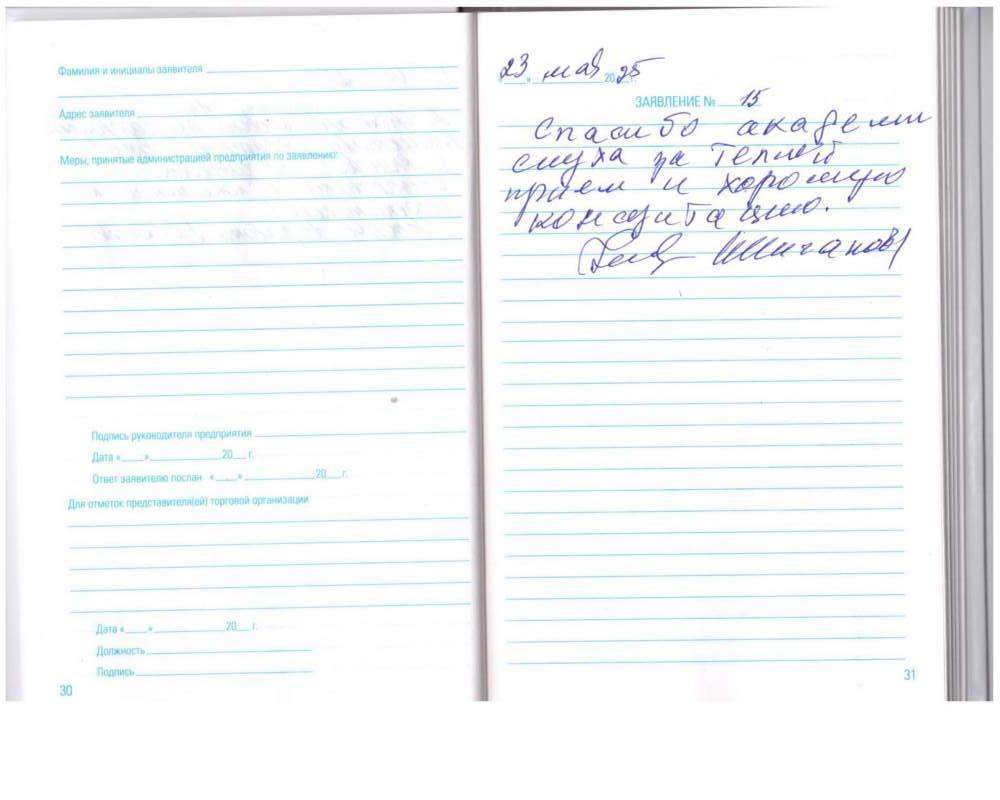 Фамилия и инициалы заявителя
Адрес заявителя
Меры, принятые администрацией предприятия по заявлению:
Подпись руководителя предприятия
Дата «____»____________20___г.
Ответ заявителю послан «____»____________20___г.
Для отметок представителя(ей) торговой организации
Дата «____»____________20___г.
Должность
Подпись
30
«23» мая 2025г.
ЗАЯВЛЕНИЕ № 15
Спасибо академии
слуха за теплый
прием и хорошую
консультацию.
31